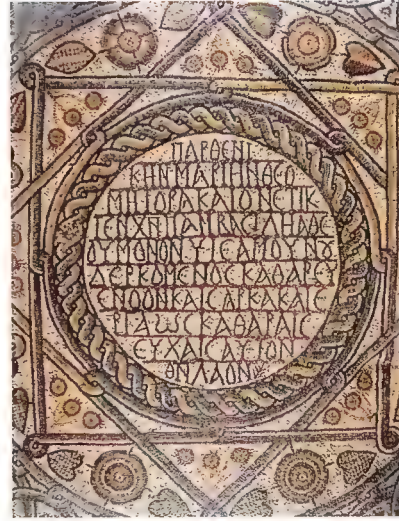 ΠΑΡΘΕΝΙ
ΚΗΝ·ΜΑΡΙΗΝΘΕΟ
ΜΗΤΟΡΑΚΑΙΟΝΕΤΙΚ
ΤΕΝΧΝΠΑΝΒΑCΙΛΗΑΘΕ
ΟΥΜΟΝΟΝΥΙΕΑΜΟΥΝȢ
ΔΕΡΚΟΜΕΝΟCΚΑΘΑΡΕΥ
ΕΝΟΟΝΚΑΙCΑΡΚΑΚΑΙΕ
ΡΓΑΩCΚΑΘΑΡΑΙC
ΕΥΧΑΙCΑΥΤΟΝ
ΘΝΛΑΟΝ